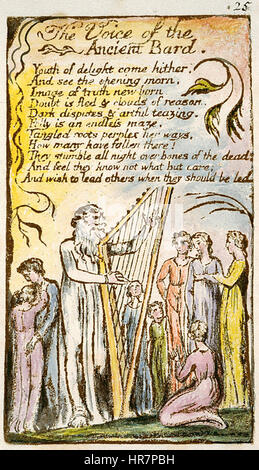 25.
The Voice of the
Ancient Bard.
Youth of delight come hither,
And see the opening morn,
Image of truth new born
Doubt is fled & clouds of reason
Dark disputes & artful teazing.
Folly is an endless maze,
Tangled roots perplex her ways,
How many have fallen there!
They stumble all night over bones of the dead
And feel they know not what but care;
And wish to lead others when they should be led
alamy stock photo
HR7PBH